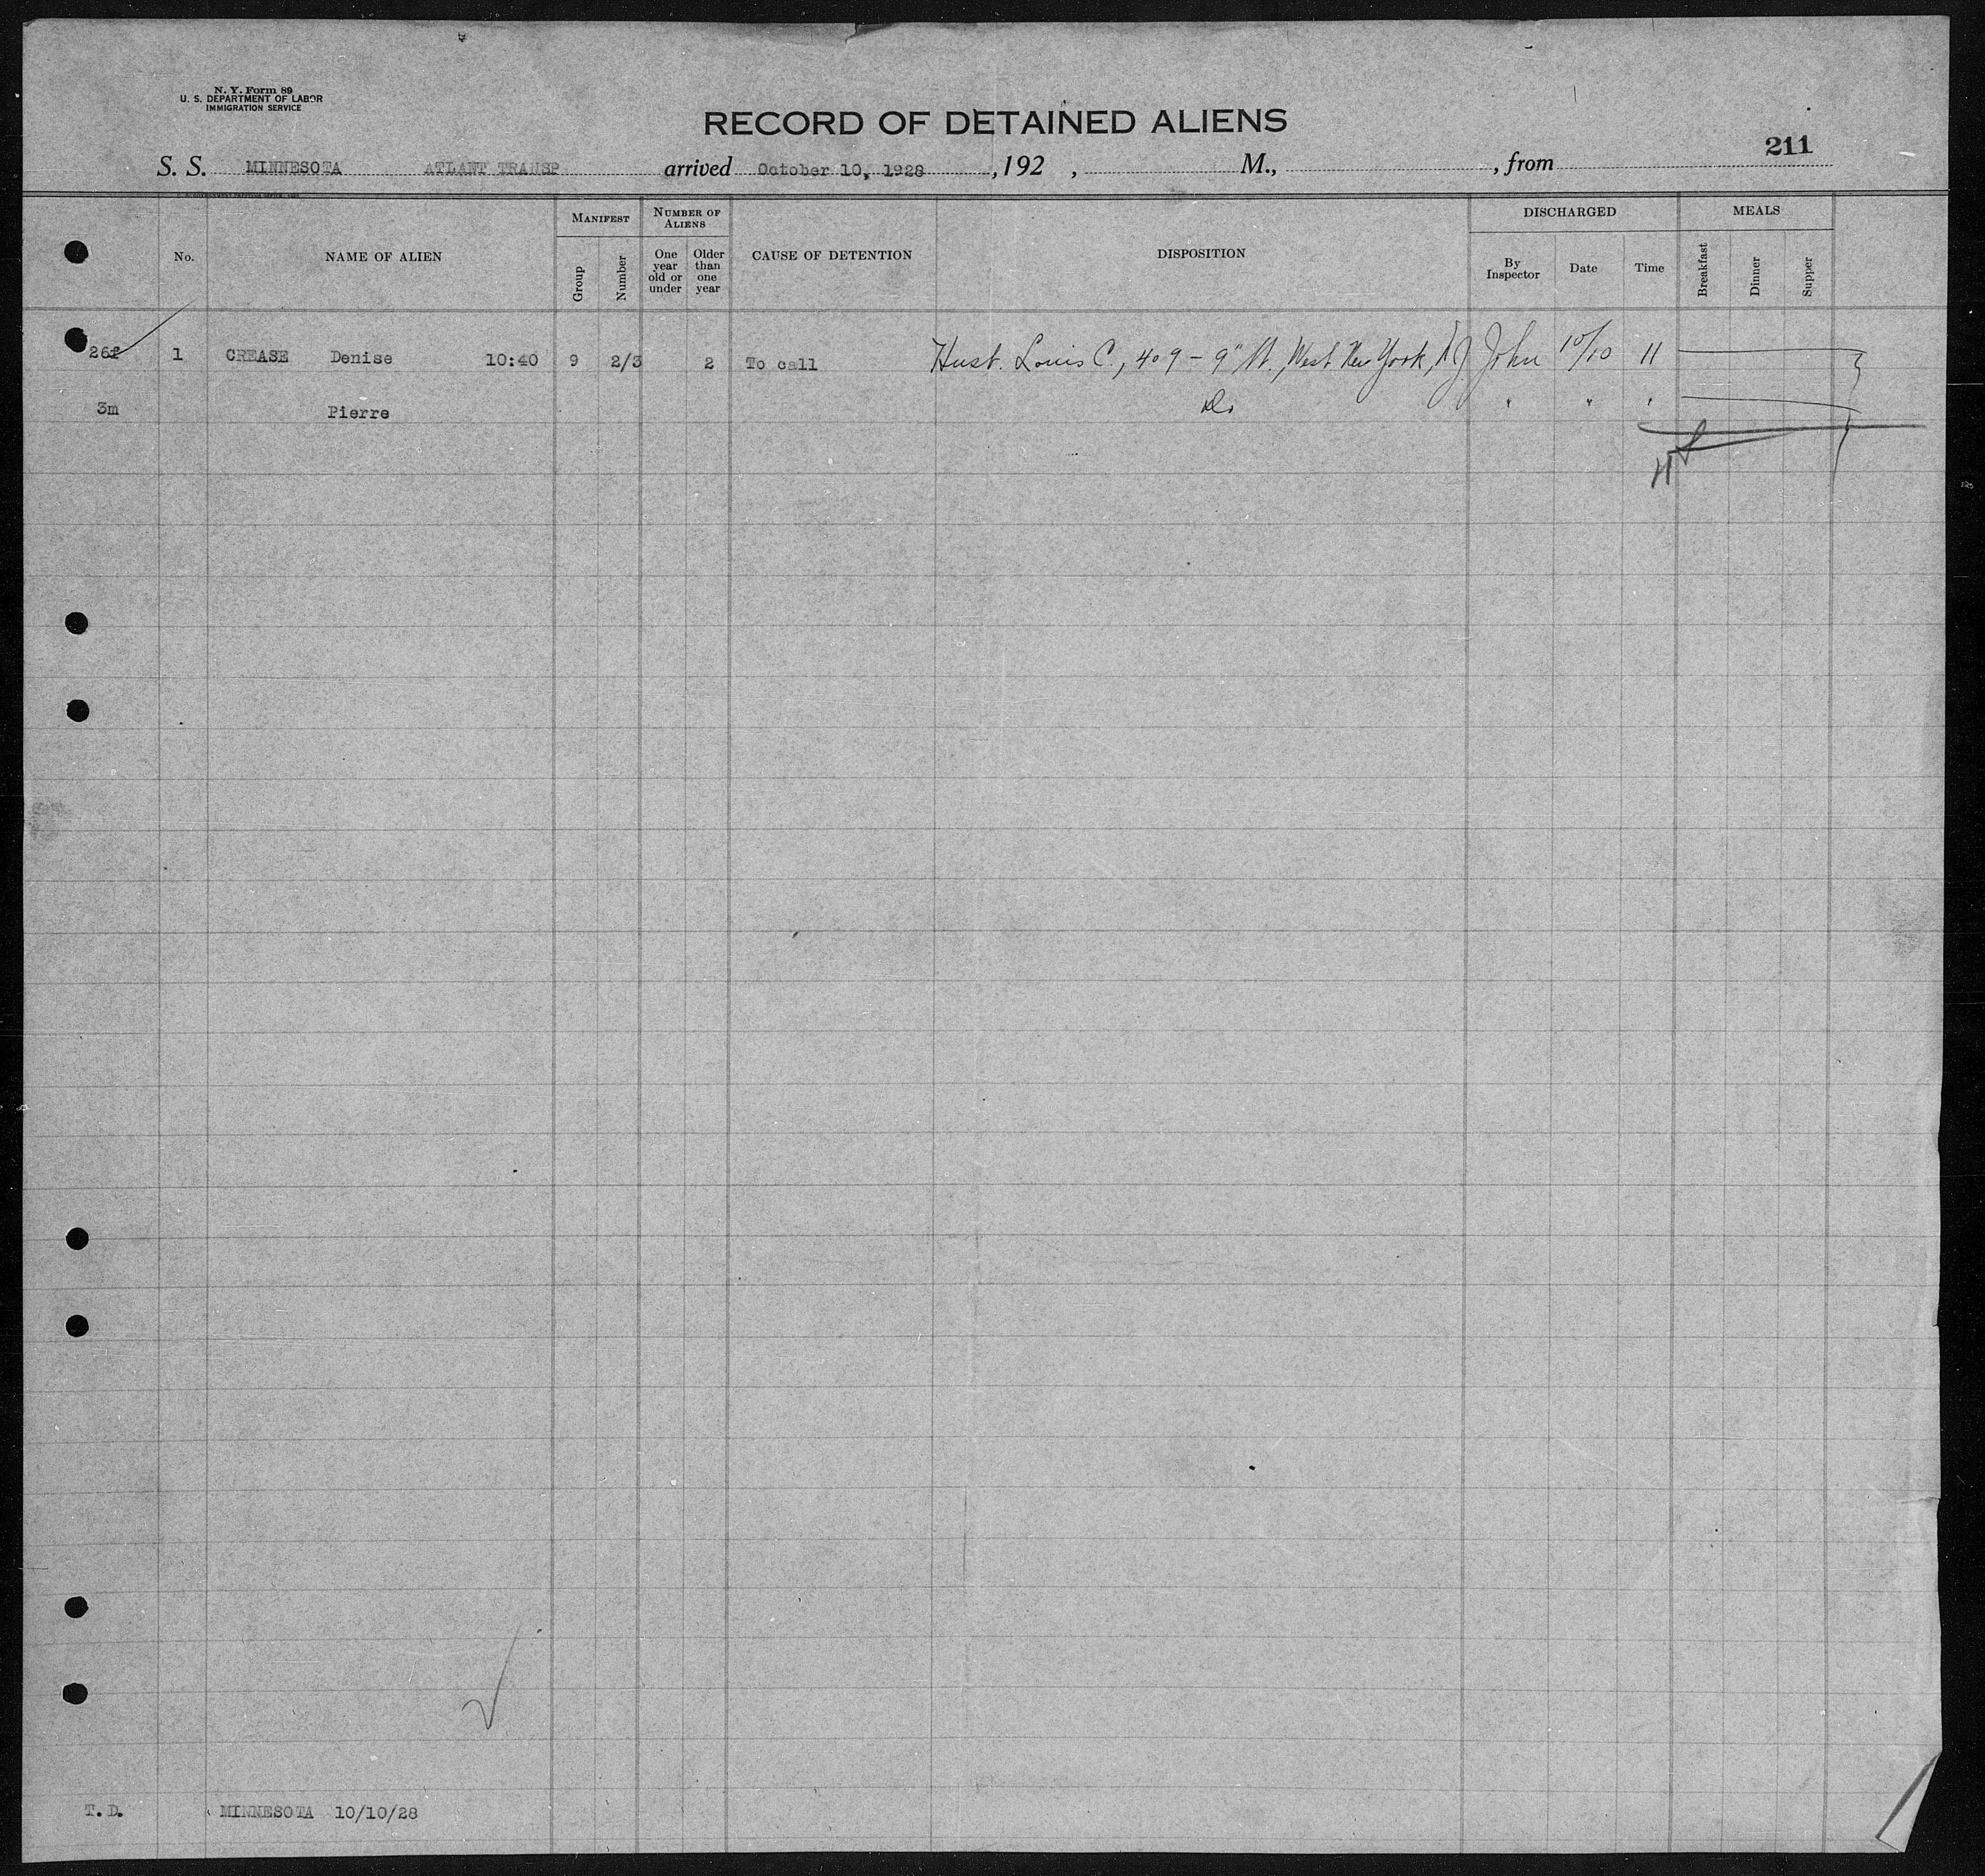 N. Y. Form 89
U. S. DEPARTMENT OF LABOR
IMMIGRATION SERVICE
RECORD OF DETAINED ALIENS
211
S. S. MINNESOTA ATLANT TRANSP arrived October 10, 1928, 192 , M., , from
No. NAME OF ALIEN MANIFEST Group Number NUMBER OF ALIENS One year old or under Older than one year CAUSE OF DETENTION DISPOSITION DISCHARGED By Inspector Date Time MEALS Breakfast Dinner Supper
26f 1 CREASE Denise 10:40 9 2/3 2 To call Husb. Louis C., 409 - 9" St., West New York, N.J. John 10/10 11
3m Pierre Do " " "
T.D. MINNESOTA 10/10/28